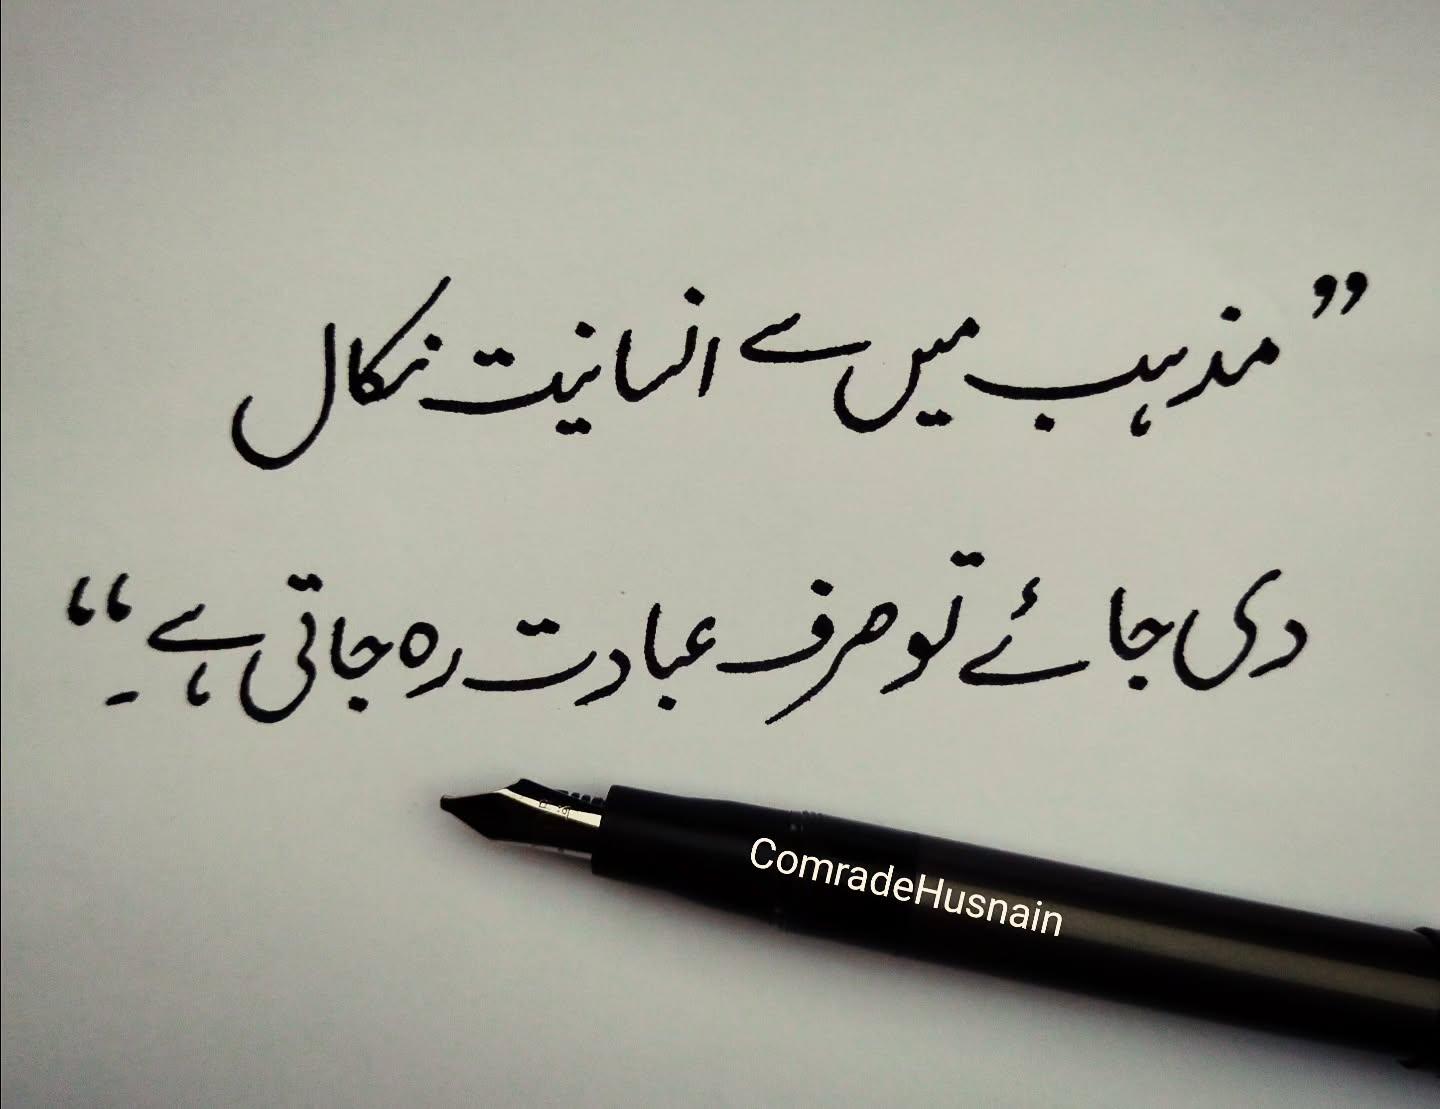 ”مذہب میں سے انسانیت نکال
دی جائے تو صرف عبادت رہ جاتی ہے۔“
ComradeHusnain